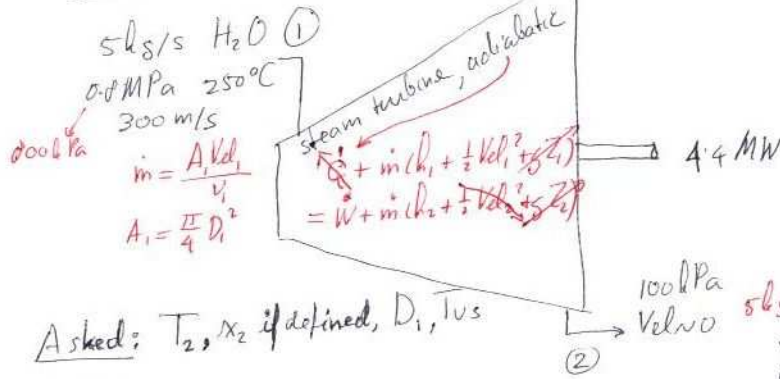 5kg/s H₂O ①
0.8 MPa 250°C
300 m/s
800kPa
ṁ = A₁Vel₁ / v₁
A₁ = π/4 D₁²
steam turbine, adiabatic
Q̇ + ṁ(h₁ + ½ Vel₁² + gZ₁)
= Ẇ + ṁ(h₂ + ½ Vel₂² + gZ₂)
4.4 MW
100kPa
Vel~0
②
Asked: T₂, x₂ if defined, D₁, Tvs